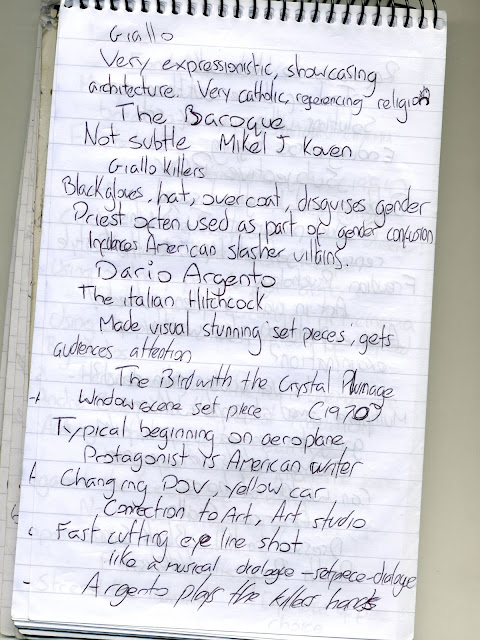 Giallo
Very expressionistic, showcasing
architecture. Very catholic, referencing religion
The Baroque
Not subtle Mikel J Koven
Giallo killers
Black gloves, hat, overcoat, disguises gender
Priest often used as part of gender confusion
Influences American slasher villains.
Dario Argento
The italian Hitchcock
Made visual stunning 'set pieces', gets
audiences attention
The Bird with the Crystal Plumage
- Window scene set piece (1970)
Typical beginning on aeroplane
Protagonist is American writer
- Changing POV, yellow car
Connection to Art, Art studio
Fast cutting eye line shot
like a musical dialoge - setpiece - dialoge
- Argento plays the killers hands